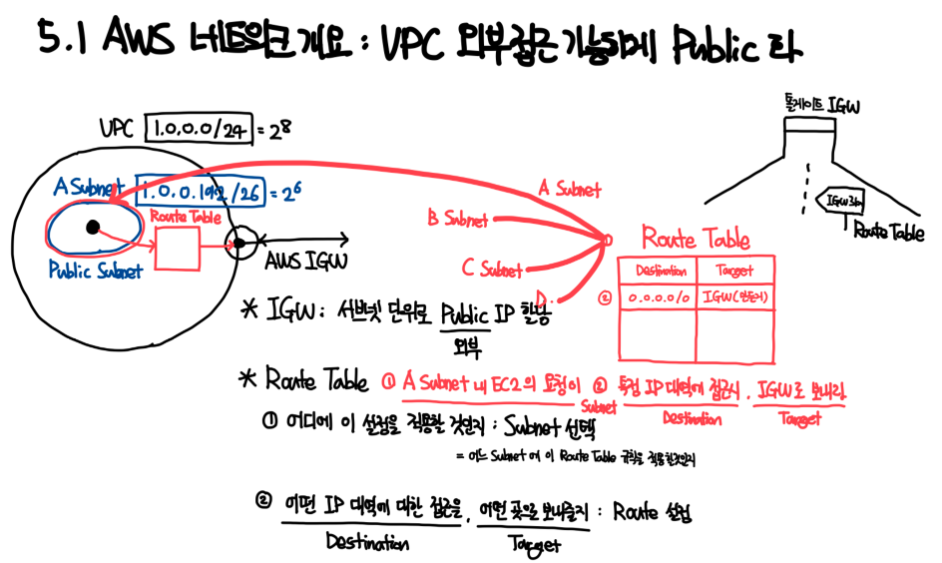 5.1 AWS 네트워크 개요 : VPC 외부접근 가능하게 Public 화
톨게이트 IGW
VPC 1.0.0.0/24 = 2⁸
A Subnet 1.0.0.192/26 = 2⁶
A Subnet
IGW
Route Table
Route Table
B Subnet
Route Table
C Subnet
Destination Target
AWS IGW
Public Subnet
D.
② 0.0.0.0/0 IGW(만든거)
* IGW : 서브넷 단위로 Public IP 할당
외부
* Route Table ① A Subnet 내 EC2의 요청이 ② 특정 IP 대역에 접근시, IGW로 보내라
Subnet Destination Target
① 어디에 이 설정을 적용할 것인지 : Subnet 선택
= 어느 Subnet에 이 Route Table 규칙을 적용할것인지
② 어떤 IP 대역에 대한 접근을, 어떤 곳으로 보내줄지 : Route 설정
Destination Target